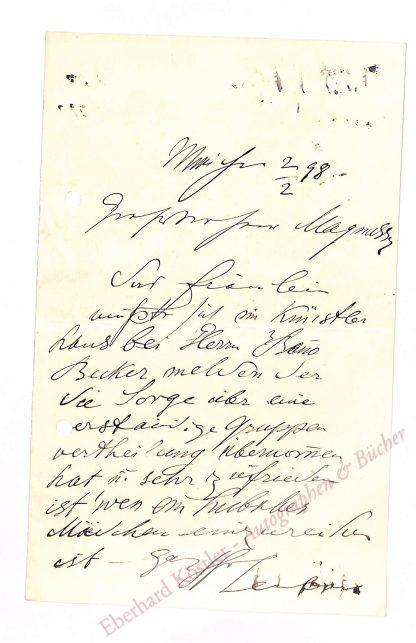 München 2/2 98.
Magnussen
Das Fräulein
müßte sich im Künstler
haus bei Herrn Benno
Becker melden der
die Sorge über eine
erstaunige Gruppen
vertheilung übernommen
hat u. sehr zufrieden
ist wen ein hübsches
Mädchen einzureihen
ist –
Lenbach
Eberhard Köstler - Autographen & Bücher